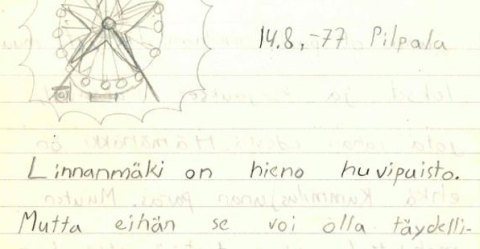 14.8.-77 Pilpala
Linnanmäki on hieno huvipuisto.
Mutta eihän se voi olla täydelli-